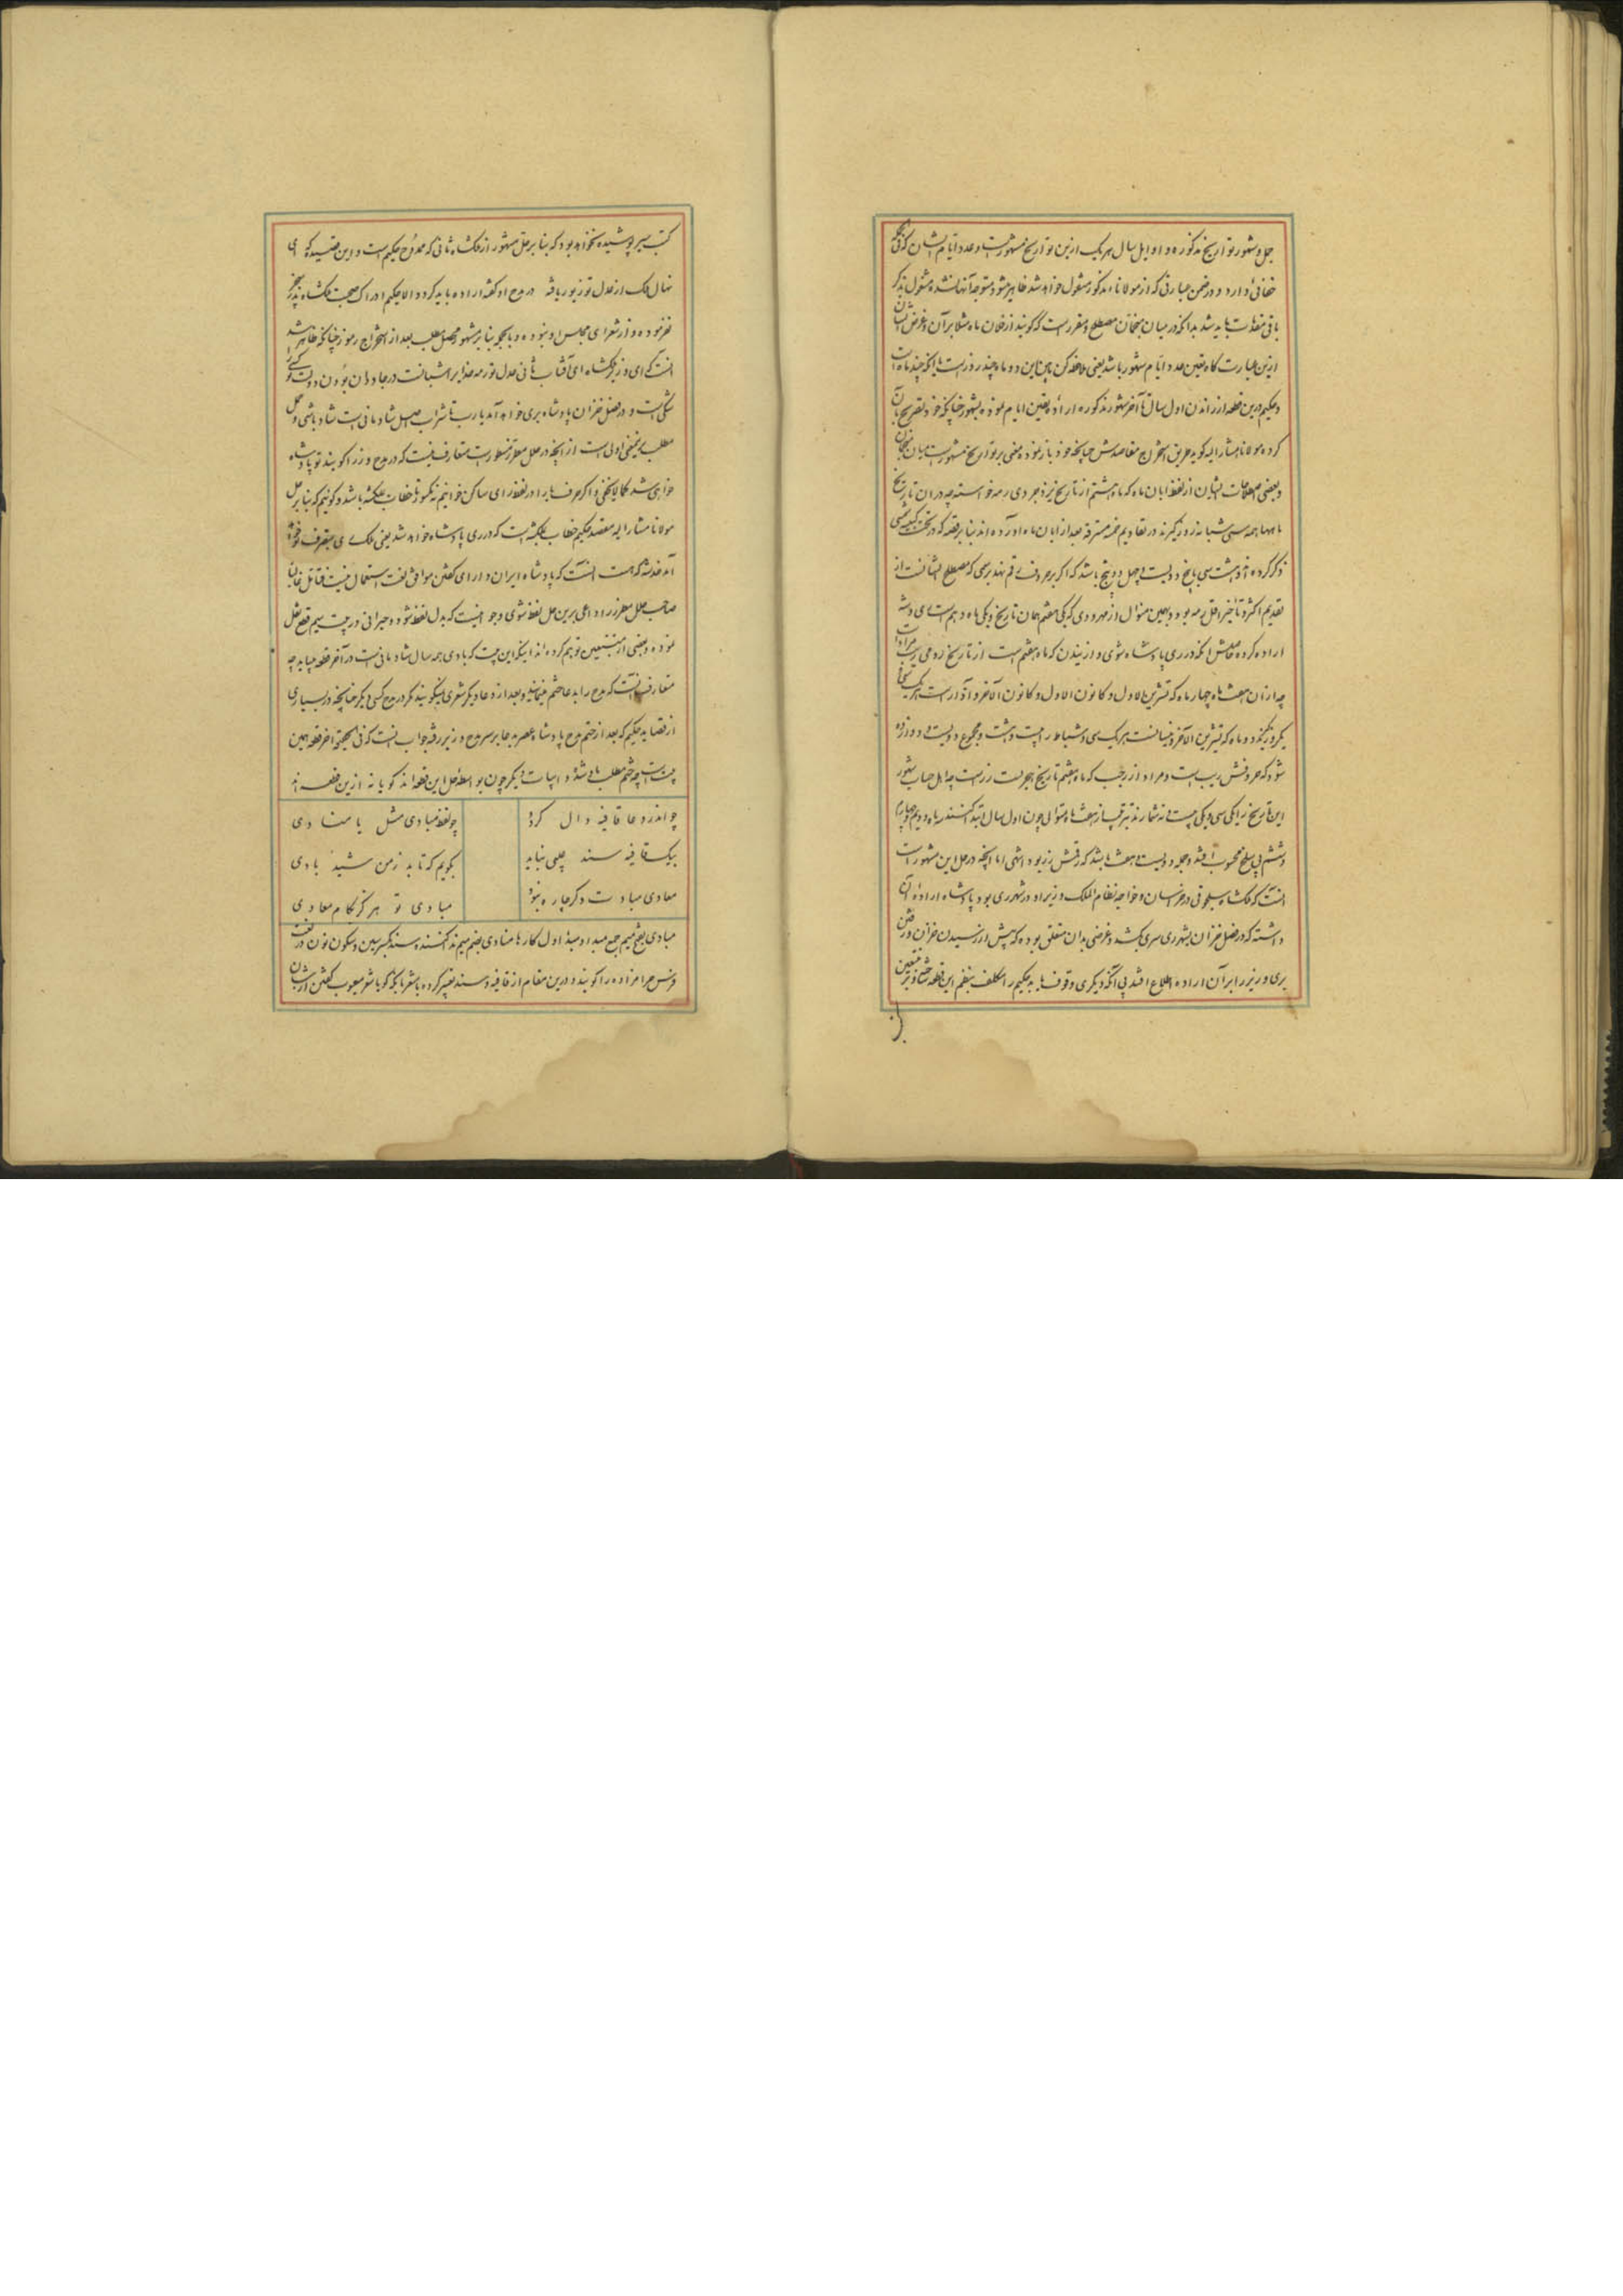 جمل و شهور تواریخ مذکوره و اوایل سال هر یک ازین تواریخ مشهورست و عدد ایام ایشان که فی
خفائی دارد و در ضمن عبارتی که از مولانا مذکور منقول خواهد شد ظاهر میشود متوجه آنها نشده مشغول بذکر
باقی مقدمات باید شد بدانکه در میان منجمان مصطلح و مقررست که گویند از فلان ماه مثلا بر آن و غرض ایشان
ازین عبارت گاه تعیین عدد ایام شهور باشد یعنی ملاحظه کن مابین این دو ماه چند روزست یا آنکه چند ماه است
و حکیم درین قطعه از راندن اول سال تا آخر شهور مذکوره اراده تعیین ایام نموده بشهور چنانکه خود تصریح بآن
کرده مولانا مشار الیه گوید طریق استخراج مقاصدش چنانچه خود باز نموده مبنی بر تواریخ مشهورست میان منجمان
و بعضی مصطلحات ایشان از لفظ ابان ماه که ماه هشتم از تاریخ یزدجردی رمه خواسته چه در آن تاریخ
ماهها همه سی شبانه روز گیرند در تقاویم خمسه مسترقه بعد از ابان ماه آورده اند بنابر قصه که در تحت کبیسه شمسی
ذکر کرده آنرا هشت سی با پنج دویست و چهل و پنج باشد که اگر بر حروف رقم نهند برسمی که مصطلح ایشانست از
تقدیم اکثر و تأخیر اقل رمه بود و بهمین منوال از مهر و دی که یکی هفتم همان تاریخ و یکی ماه دهم است ری و شه
اراده کرده حاصلش آنکه در ری پادشاه شوی و از نیسان که ماه هفتم است از تاریخ رومی ریب مراد
چه از آن هفت ماه چهار ماه که تشرین الاول و کانون الاول و کانون الآخر و آذار است هر یک سی و
یکروز گیرند و دو ماه که تشرین الآخر و نیسانست هر یک سی و شباط را بیست و هشت و مجموع دویست و دوازده
شود که حروفش ریب است و مراد از رجب که ماه هفتم تاریخ هجریست رزست چه اهل حساب شهور
این تاریخ را یکی سی و یکی بیست و نه شمارند بترتیب از هفت ماه متوالی چون اول سال ابتدا کنند سه ماه دویم و چهارم
و ششم بی سلخ محسوب افتد و جمله دویست و هفت باشد که رقمش رز بود انتهی اما آنچه در حل این مشهور است
آنست که ملکشاه سلجوقی در خراسان و خواجه نظام الملک وزیر او در شهر ری بود و پادشاه اراده آن
داشته که در فصل خزان بشهر ری سری بکشد و غرضی بدان متعلق بوده که پیش از رسیدن خزان و رفتن
بری وزیر را بر آن اراده اطلاع افتد بی آنکه دیگری وقوف یابد حکیم را تکلف بنظم این قطعه ساخته و بر متتبعین
کتب سیر پوشیده نخواهد بود که بنابر حل مشهور از ملکشاه ثانی که ممدوح حکیم است و این قصیده که ای
نهال ملک از عدل تو زیور یافته در مدح او گفته اراده باید کرد و الا حکیم ادراک صحبت ملکشاه پدر سنجر
نفرموده و از شعرای مجلس او نبوده و بالجمله بنابر مشهور محصل مطلب بعد از استخراج رموز چنانکه ظاهر شد
آنست که ای وزیر ملکشاه ای آفتاب ثانی عدل تو رمه خدایرا شبانست در جاودان بودن دولت تو کس را
شکی است و در فصل خزان پادشاه بری خواهد آمد یارب تا شراب اصل شادمانی است شاد باشی و حمل
مطلب برینمعنی اولی است از آنچه در حل مطرز مسطورست متعارف نیست که در مدح وزرا گویند تو پادشاه
خواهی شد کما لا یخفی و اگر حرف یا را در لفظ رای ساکن خوانیم نه مکسور تا خطاب بملکشه باشد و گوئیم که بنابر حل
مولانا مشار الیه مقصد حکیم خطاب بملکشه است که در ری پادشاه خواهد شد یعنی ملک ری بتصرف تو خواهد
آمد خدشه که هست آنست که پادشاه ایران و دارای گفتن موافق لغت استعمال نیست فتأمل غالبا
صاحب حل مطرز را داعی برین حمل لفظ شوی و جواب اینست که بدل لفظ شود و حیرانی در بیت سیم قطع نقل
نموده و بعضی از متتبعین توهم کرده اند اینکه این بیت که بادی همه سال شادمانی است در آخر قطعه میباید چه
متعارف آنست که مدح را بدعا ختم مینمایند و بعد از دعا دیگر شعری نمیگویند مگر در مدح کسی دیگر چنانچه در بسیاری
از قصاید حکیم که بعد از ختم مدح پادشاه عصر بدعا بر سر مدح وزیر رفته جواب آنست که فی الحقیقه آخر قطعه همین
بیت است چه ختم مطلب باین شده و ابیات دیگر چون بواسطه حل این قطعه اند گویا نه ازین قطعه اند
چو اندر دعا قافیه دال کرد چو لفظ مبادی مثل یا منادی
بیک قافیه سند چلبی نیاید بگویم که تا بد ز من شنید بادی
معادی مبادت دگر چاره نبود مبادی تو هرگز بکام معادی
مبادی بفتح میم جمع مبدا و مبدأ اول کارها منادی بضم میم ندا کننده و سند بکسر سین و سکون نون در لغت
فرس حرامزاده را گویند و درین مقام از قافیه و سند تعبیر کرده باشعار بآنکه گویا شعر معیوب گفتن از ایشان